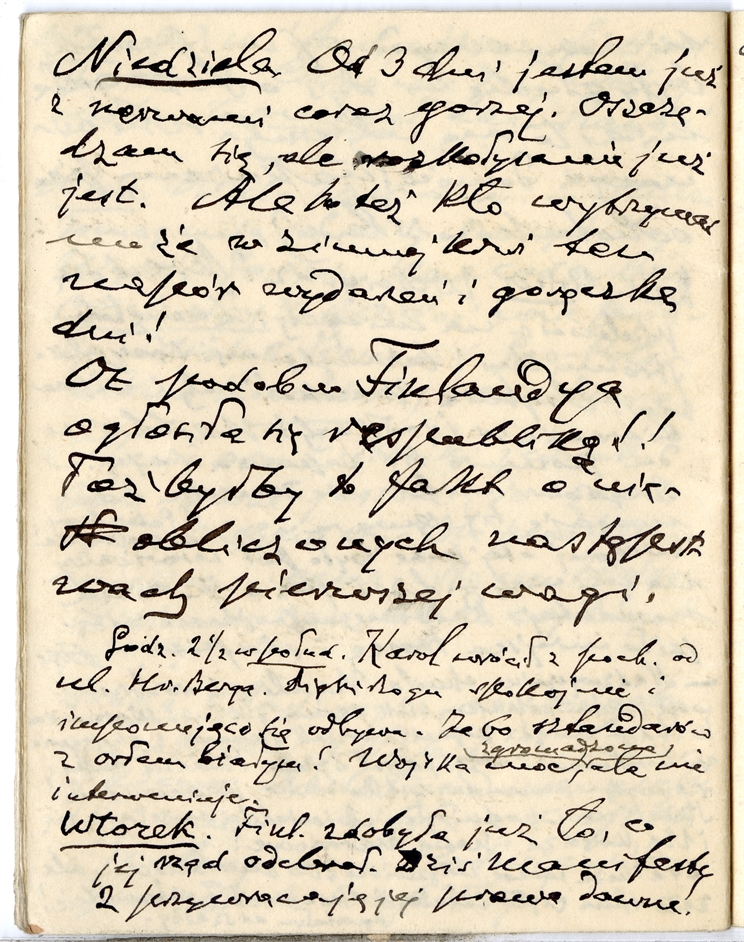 Niedziela. Od 3 dni jestem już
z nerwami coraz gorzej. Oszczę-
dzam się, ale rozkołysanie już
jest. Ale bo też kto wytrzymać
może w zimnej krwi ten
napór wydarzeń i gorączkę
dni!
Ot podobno Finlandya
ogłosiła się respubliką!!
Toż byłby to fakt o nie-
obliczonych następst
wach pierwszej wagi.
Godz. 2 1/2 w połud. Karol wrócił z poch. od
ul. Hr. Berga. spokojnie i
imponująco się odbywa. Ze 60 sztandarów
z orłem białym! Wojska moc zgromadzona, ale nie
interweniuje.
Wtorek. Finl. zdobyła już to, co
jej rząd odebrał. Dziś manifesty
z przywracają jej prawa dawne.